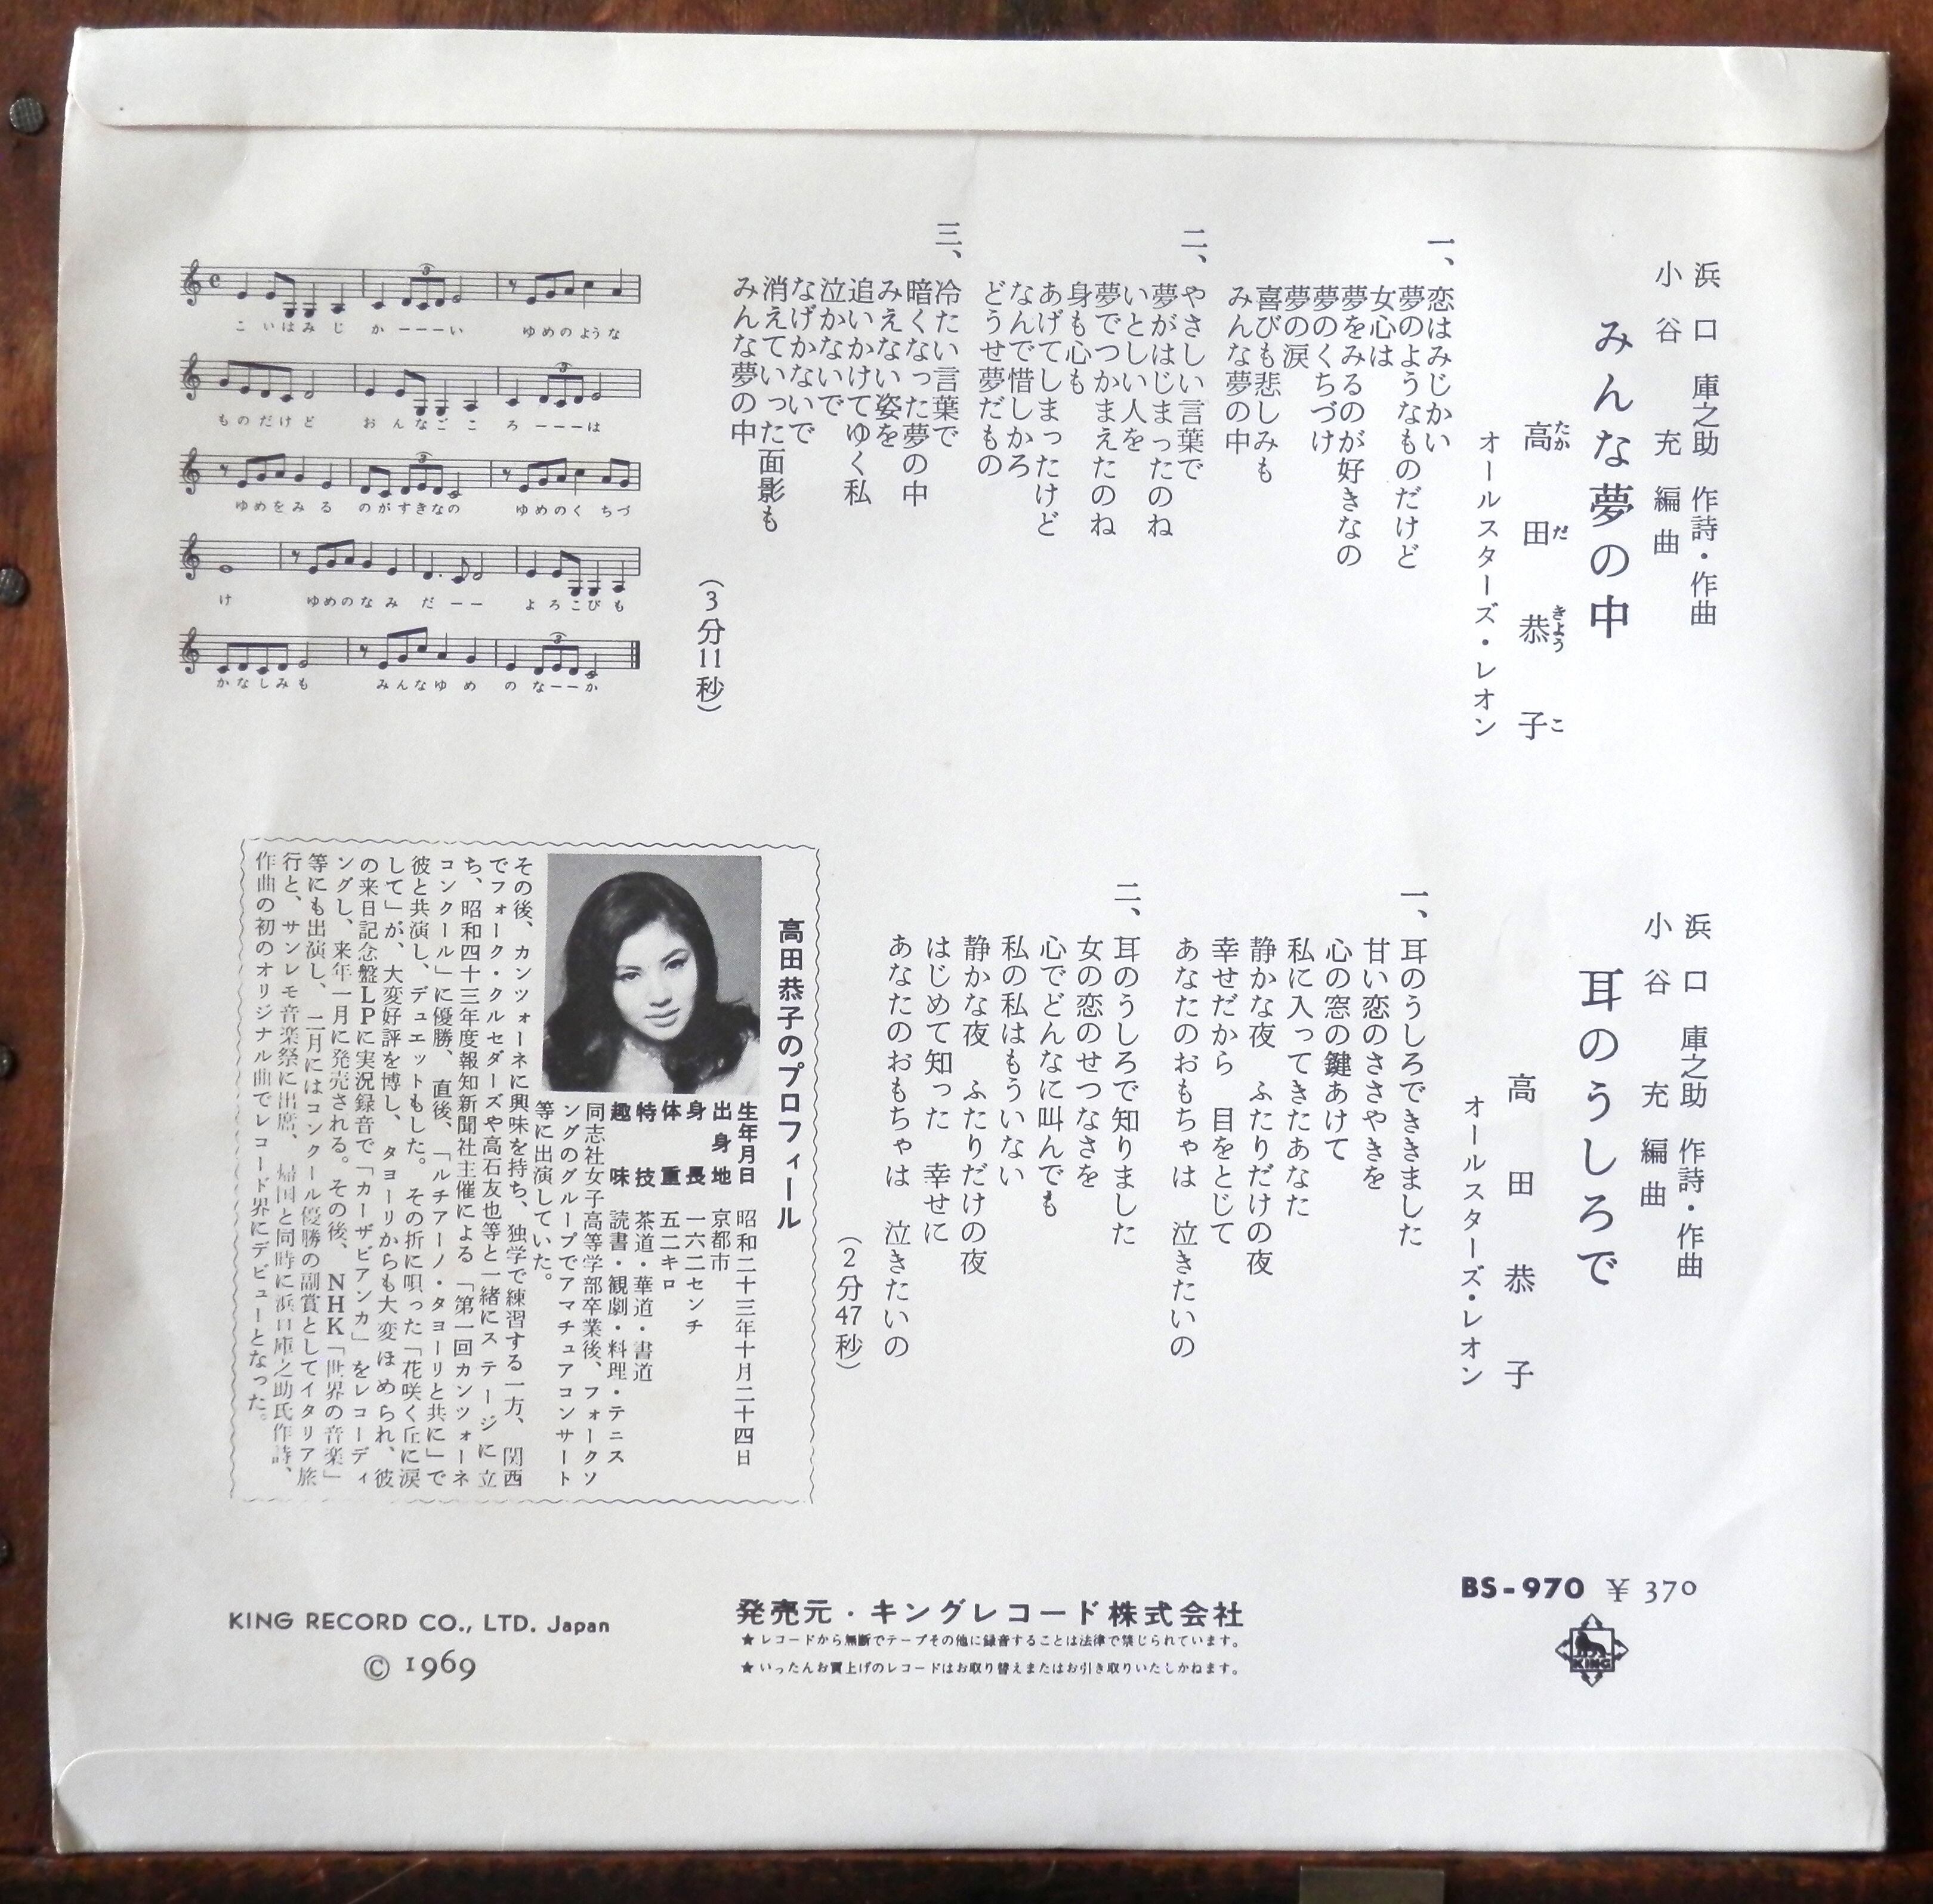 浜口庫之助 作詩・作曲
小谷 充 編曲
みんな夢の中
高田恭子
たかだきょうこ
オールスターズ・レオン
一、恋はみじかい
夢のようなものだけど
女心は
夢をみるのが好きなの
夢のくちづけ
夢の涙
喜びも悲しみも
みんな夢の中
二、やさしい言葉で
夢がはじまったのね
いとしい人を
夢でつかまえたのね
身も心も
あげてしまったけど
なんで惜しかろ
どうせ夢だもの
三、冷たい言葉で
暗くなった夢の中
みえない姿を
追いかけてゆく私
泣かないで
なげかないで
消えていった面影も
みんな夢の中
(3分11秒)
こいはみじかーーーい ゆめのような
ものだけど おんなごころーーーは
ゆめをみる のがすきなの ゆめのくちづ
け ゆめのなみだーー よろこびも
かなしみも みんなゆめ のなーーか
浜口庫之助 作詩・作曲
小谷 充 編曲
耳のうしろで
高田恭子
オールスターズ・レオン
一、耳のうしろでききました
甘い恋のささやきを
心の窓の鍵あけて
私に入ってきたあなた
静かな夜 ふたりだけの夜
幸せだから 目をとじて
あなたのおもちゃは 泣きたいの
二、耳のうしろで知りました
女の恋のせつなさを
心でどんなに叫んでも
私の私はもういない
静かな夜 ふたりだけの夜
はじめて知った 幸せに
あなたのおもちゃは 泣きたいの
(2分47秒)
高田恭子のプロフィール
生年月日 昭和二十三年十月二十四日
出身地 京都市
身長 一六二センチ
体重 五二キロ
特技 茶道・華道・書道
趣味 読書・観劇・料理・テニス
同志社女子高等学部卒業後、フォークソ
ングのグループでアマチュアコンサート
等に出演していた。
その後、カンツォーネに興味を持ち、独学で練習する一方、関西
でフォーク・クルセダーズや高石友也等と一緒にステージに立
ち、昭和四十三年度報知新聞社主催による「第一回カンツォーネ
コンクール」に優勝、直後、「ルチアーノ・タヨーリと共に」で
彼と共演し、デュエットもした。その折に唄った「花咲く丘に涙
して」が、大変好評を博し、タヨーリからも大変ほめられ、彼
の来日記念盤LPに実況録音で「カーザビアンカ」をレコーディ
ングし、来年一月に発売される。その後、NHK「世界の音楽」
等にも出演し、二月にはコンクール優勝の副賞としてイタリア旅
行と、サンレモ音楽祭に出席、帰国と同時に浜口庫之助氏作詩、
作曲の初のオリジナル曲でレコード界にデビューとなった。
BS-970 ¥370
KING
発売元・キングレコード株式会社
★レコードから無断でテープその他に録音することは法律で禁じられています。
★いったんお買上げのレコードはお取り替えまたはお引き取りいたしかねます。
KING RECORD CO., LTD. Japan
© 1969